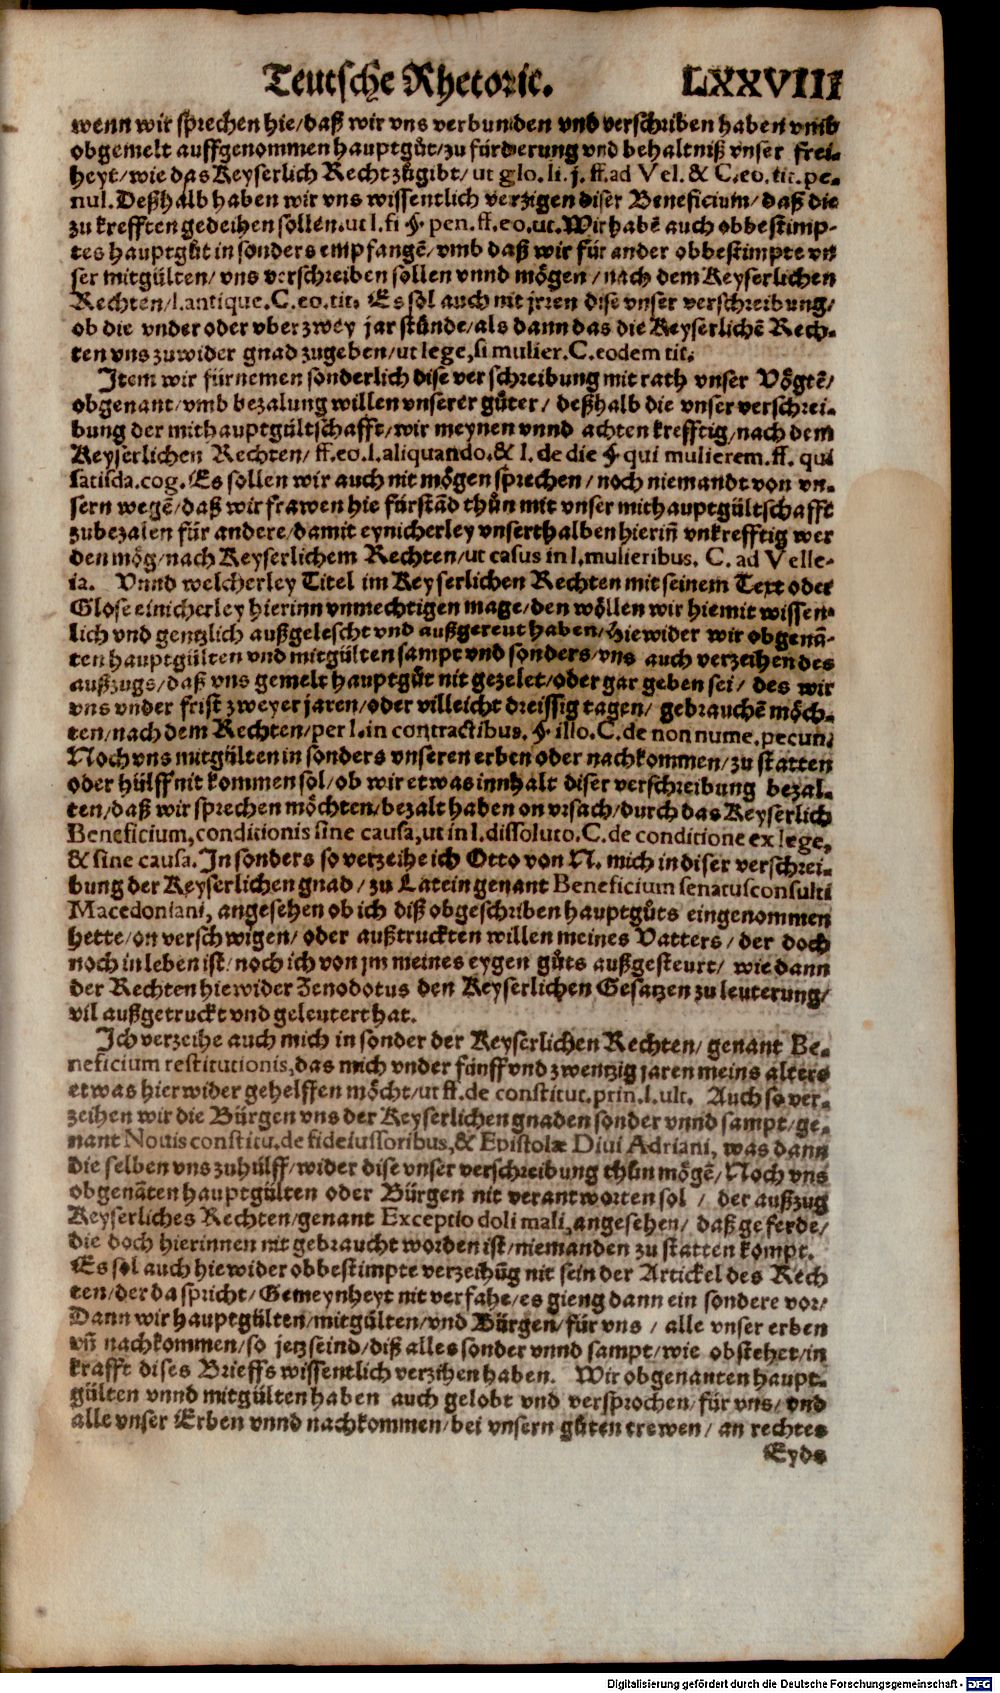 Teutsche Rhetoric. LXXVIII
wenn wir sprechen hie/daß wir vns verbunden vnd verschriben haben vmb
obgemelt auffgenommen hauptgůt/zu fürderung vnd behaltniß vnser frei-
heyt/wie das Keyserlich Recht zůgibt/ ut glo. li. j. ff. ad Vel. & C. eo. tit. pe-
nul. Deßhalb haben wir vns wissentlich verzigen diser Beneficium/ daß die
zu krefften gedeihen sollen. ut l. fi § pen. ff. eo. ut. Wir habē auch obbestimp-
tes hauptgůt in sonders empfangē/vmb daß wir für ander obbestimpte vn
ser mitgülten/ vns verschreiben sollen vnnd mögen/nach dem Keyserlichen
Rechten/l. antique. C. eo. tit. Es sol auch nit jrren dise vnser verschreibung/
ob die vnder oder vber zwey jar stünde/als dann das die Keyserlichē Rech-
ten vns zuwider gnad zugeben/ut lege, si mulier. C. eodem tit.
Item wir fürnemen sonderlich dise verschreibung mit rath vnser Vögtē/
obgenant/vmb bezalung willen vnserer gůter/ deßhalb die vnser verschrei-
bung der mithauptgültschafft/wir meynen vnnd achten krefftig/nach dem
Keyserlichen Rechten/ ff. eo. l. aliquando. & l. de die § qui mulierem. ff. qui
satisda. cog. Es sollen wir auch nit mögen sprechen/noch niemandt von vn-
sern wegē/daß wir frawen hie fürstād thůn mit vnser mithauptgültschafft
zubezalen für andere/damit eynicherley vnserthalben hierin̄ vnkrefftig wer
den mög/nach Keyserlichem Rechten/ut casus in l. mulieribus. C. ad Velle-
ia. Vnnd welcherley Titel im Keyserlichen Rechten mit seinem Text oder
Glose einicherley hierinn vnmechtigen mage/den wöllen wir hiemit wissen-
lich vnd gentzlich außgelescht vnd außgereut haben/Hiewider wir obgenā-
ten hauptgülten vnd mitgülten sampt vnd sonders/vns auch verzeihen des
außzugs/daß vns gemelt hauptgůt nit gezelet/oder gar geben sei/ des wir
vns vnder frist zweyer jaren/oder villeicht dreissig tagen/ gebrauchē möch-
ten/nach dem Rechten/per l. in contractibus. § illo. C. de non nume. pecun.
Noch vns mitgülten in sonders vnseren erben oder nachkommen/zu statten
oder hülff nit kommen sol/ob wir etwas innhalt diser verschreibung bezal-
ten/daß wir sprechen möchten/bezalt haben on vrsach/durch das Keyserlich
Beneficium, conditionis sine causa, ut in l. dissoluto. C. de conditione ex lege,
& sine causa. In sonders so verzeihe ich Otto von N. mich in diser verschrei-
bung der Keyserlichen gnad/zu Latein genant Beneficium senatusconsulti
Macedoniani, angesehen ob ich diß obgeschriben hauptgůts eingenommen
hette/on verschwigen/ oder außtruckten willen meines Vatters/der doch
noch in leben ist/noch ich von jm meines eygen gůts außgesteurt/ wie dann
der Rechten hiewider Zenodotus den Keyserlichen Gesatzen zu leuterung/
vil außgetruckt vnd geleutert hat.
Ich verzeihe auch mich in sonder der Keyserlichen Rechten/ genant Be-
neficium restitutionis, das mich vnder fünff vnd zwentzig jaren meins alters
etwas hierwider gehelffen möcht/ut ff. de constitut. prin. l. ult. Auch so ver-
zeihen wir die Bürgen vns der Keyserlichen gnaden sonder vnnd sampt/ge-
nant Nouis constitu. de fideiussoribus, & Epistolæ Diui Adriani, was dann
die selben vns zuhülff/wider dise vnser verschreibung thůn mögē/Noch vns
obgenāten hauptgülten oder Bürgen nit verantworten sol/ der außzug
Keyserliches Rechten/genant Exceptio doli mali, angesehen/ daß geferde/
die doch hierinnen nit gebraucht worden ist/niemanden zu statten kompt.
Es sol auch hiewider obbestimpte verzeihūg nit sein der Artickel des Rech
ten/der da spricht/Gemeynheyt nit verfahe/es gieng dann ein sondere vor/
Dann wir hauptgülten/mitgülten/vnd Bürgen/für vns/ alle vnser erben
vn̄ nachkommen/so jetz seind/diß alles sonder vnnd sampt/wie obstehet/in
krafft dises Brieffs wissentlich verzihen haben. Wir obgenanten haupt-
gülten vnnd mitgülten haben auch gelobt vnd versprochen/für vns/ vnd
alle vnser Erben vnnd nachkommen/bei vnsern gůten trewen/ an rechtes
Eyds
Digitalisierung gefördert durch die Deutsche Forschungsgemeinschaft - DFG